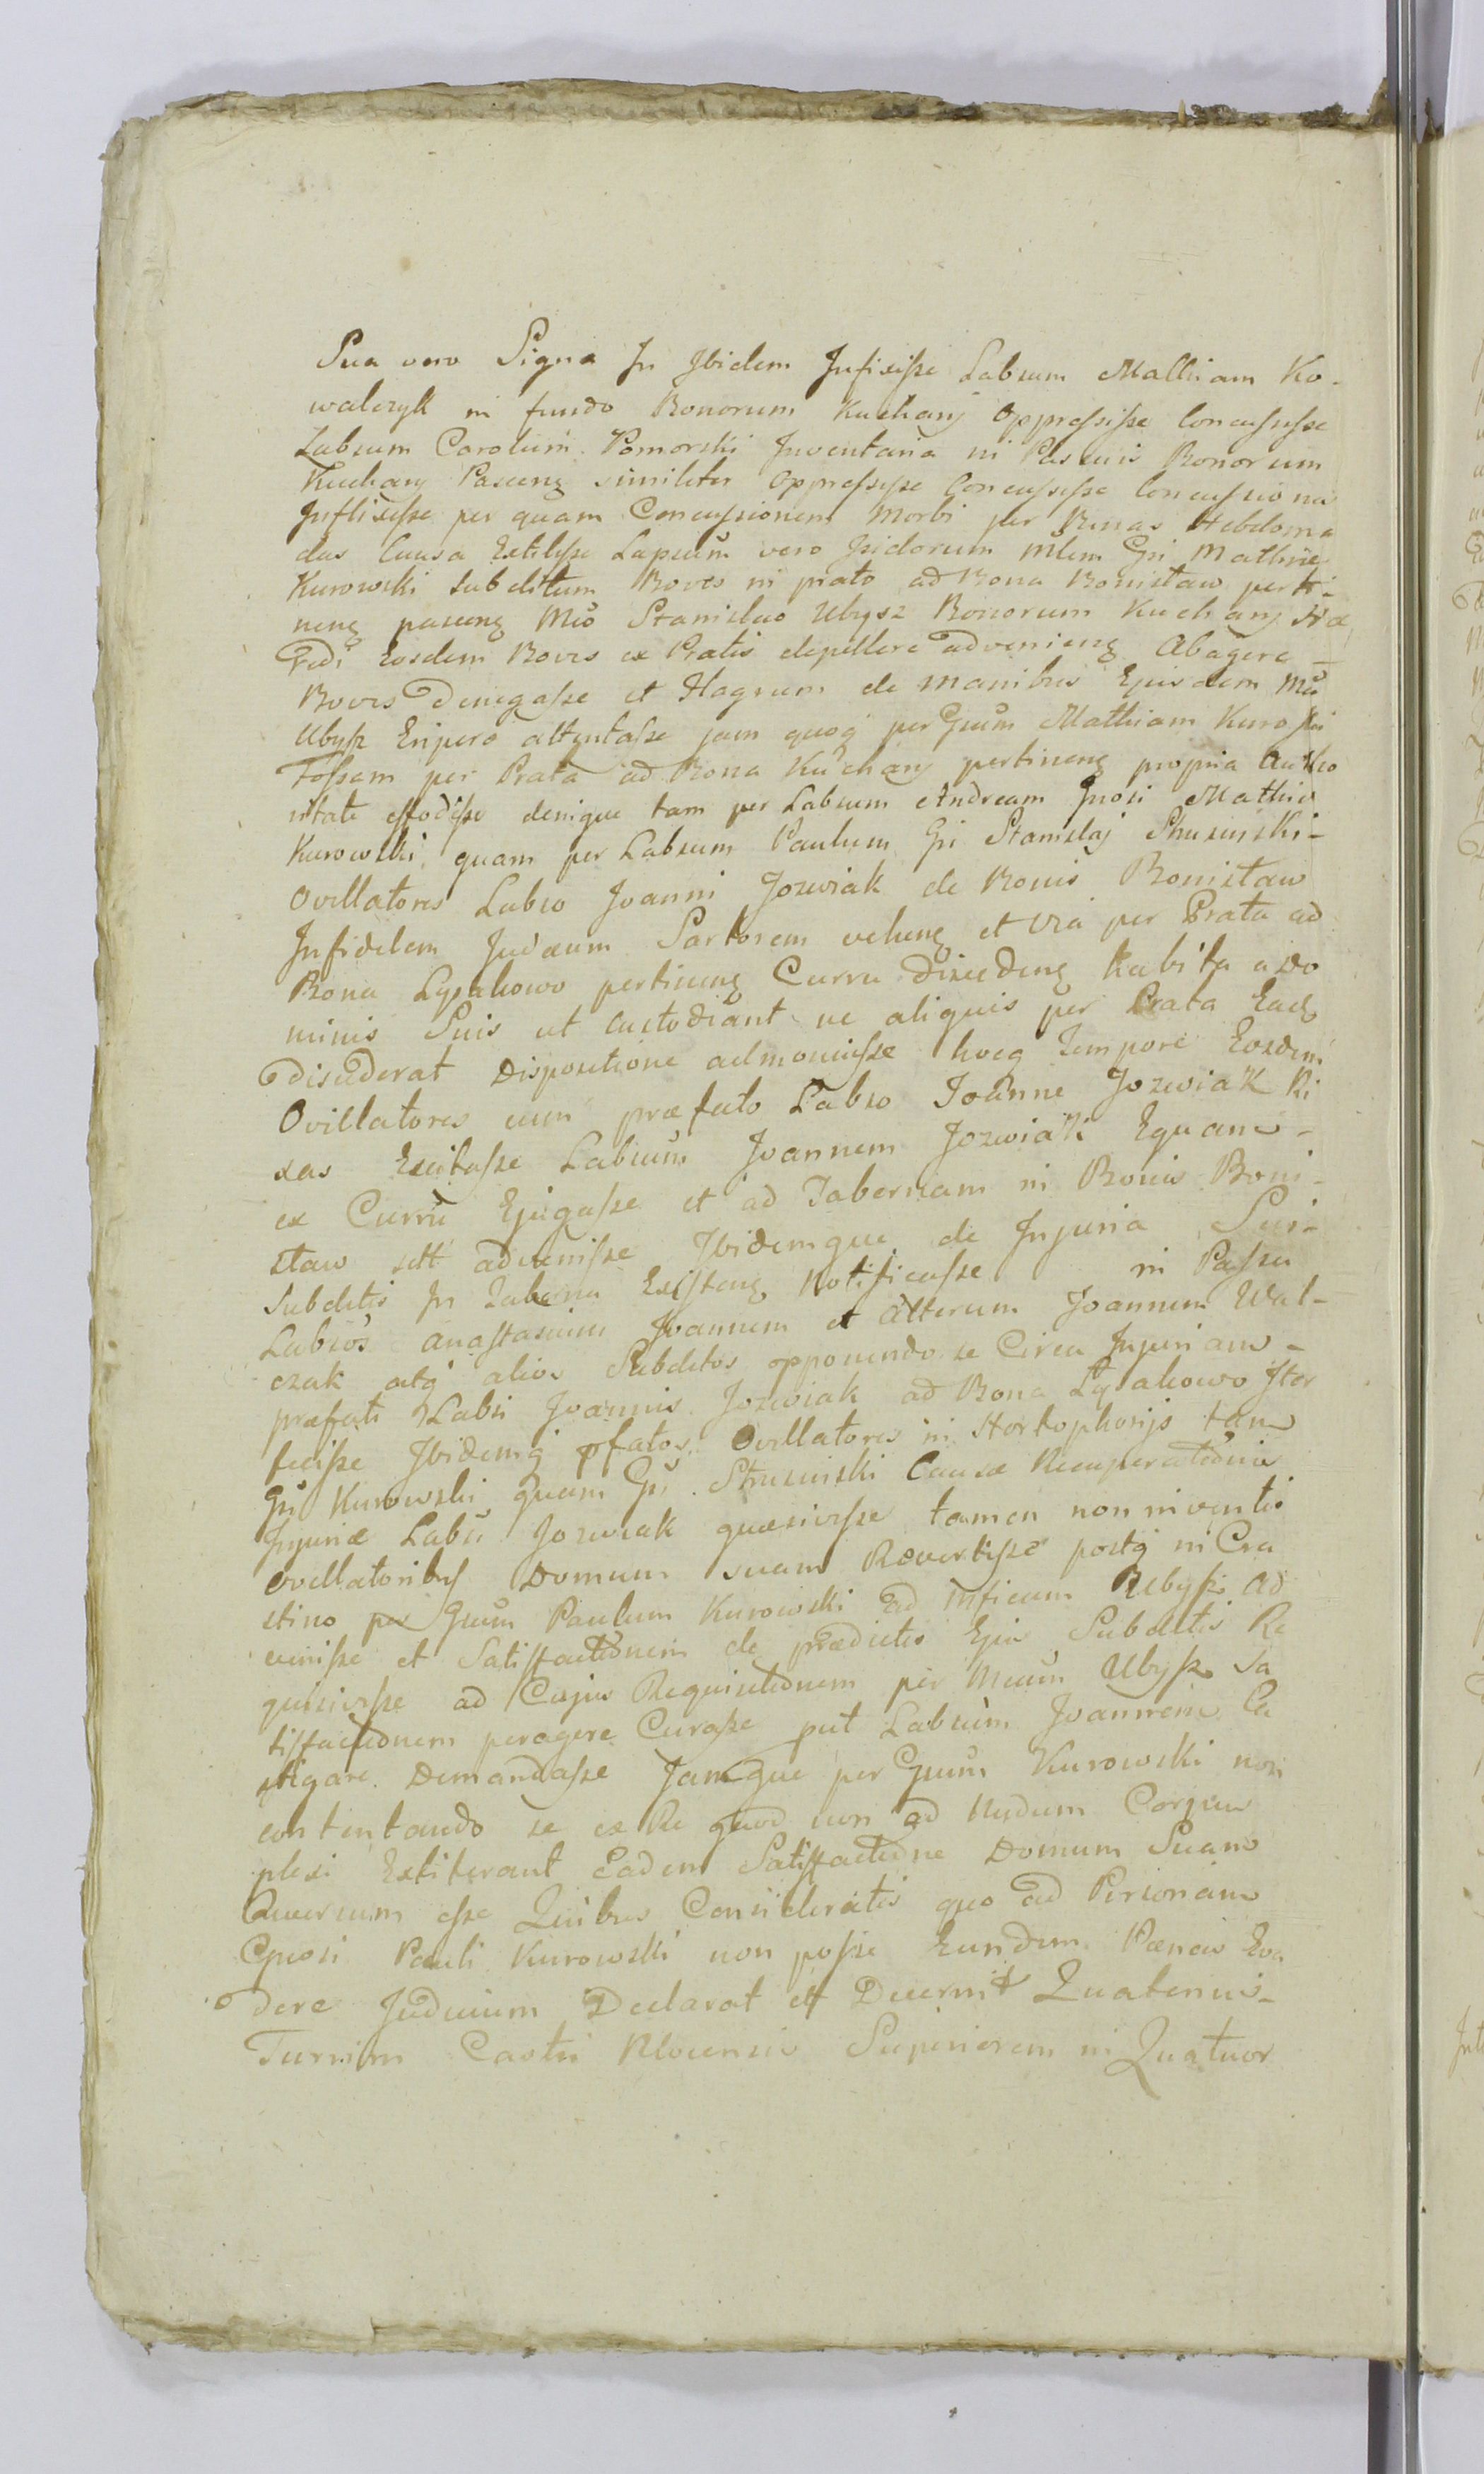 Sua vero Signa In Ibidem Infixiſse Labsum Mathiam Ko-
walczyk in fundo Bonorum Kuchary Oppreſsiſse Concuſsiſse
Labsum Carolum Pomorski Inventaria in Pascuis Bonorum
Kuchary Pasceng similiter Oppreſsiſse Concuſsiſse Concuſsiones
Inflixiſse per quam Concuſsionem Morbi per Binas Hebdoma
das Causa Extitiſse Lapsum vero Isidorum Mlem Gsi Mathiæ
Kurowski Subditum Boves in prato ad Bona Bonislaw perti-
neng pasceng Mco Stanislao Ubysz Bonorum Kuchary Hæ
redi Eosdem Boves ex Pratis depellere advenieng Abagere -
Boves Denegaſse et Flagrum de manibus Ejusdem Mci
Ubyſz Eripere attentaſse jam quoq per Gsum Mathiam Kurowski
Foſsam per Prata ad Bona Kuchary pertineng propria Autho
ritate effodiſse denique tam per Labsum Andream Gnosi Mathiæ
Kurowski, quam per Labsum Paulum Gsi Stanislaj Struſinski-
Ovillatores Labso Joanni Jozwiak de Bonis Bonislaw
Infidelem Judæum Sartorem veheng et Via per Prata ad
Bona Lysakowo pertineng Curru Discedeng habita a Do
minis Suis ut custodiant ne aliquis per Prata Eadg
discederat Dispositione admoniuſse hocq Tempore Eosdem
Ovillatores cum præfato Labso Joanne Jozwiak Ri
xas Excitaſse Labsum Joannem Jozwiak Equam -
ex Curru Ejugaſse et ad Tabernam in Bonis Boni-
slaw sitt adveniſse Ibidemque de Injuria Sui-
Subditis In Taberna Existeng Notificaſse in Paſsu
Labsos Anastasium Joannem et Alterum Joannem Wal-
czak atq alios Subditos opponendo se Circa Injuriam -
præfati Labsi Joannis Jozwiak ad Bona Lysakowo Iter
feciſse Ibidemq pfatos Ovillatores in Hortophorijs tam
Gsi Kurowski quam Gsi Strusinski Causa Recuperationis
Injuriæ Labsi Jozwiak quæsiviſse tamen non inventis
ovillatoribus Domum suam Revertiſse postq in Cra
stino per Gsum Paulum Kurowski ad Mficum Ubyſz Ad
veniſse et Satisfactionem de prædictis Ejus Subditis Re
quisiviſse ad Cujus Requisitionem per Mcum Ubyſz Sa
tisfactionem peragere Curaſse put Labsum Joannem Ca
stigare Demandaſse Jamque per Gsum Kurowski non
contentando se ex Re quod non ad Nudum Corpus
plexi Extiterant Eadem Satisfactione Domum Suam
Aversum eſse Quibus Consideratis quo ad Personam
Gnosi Pauli Kurowski non poſse Eundem Pænas Eva
dere Judicium Declarat et Decernit Quatenus-
Turrim Castri Plocensis Superiorem in Quatuor